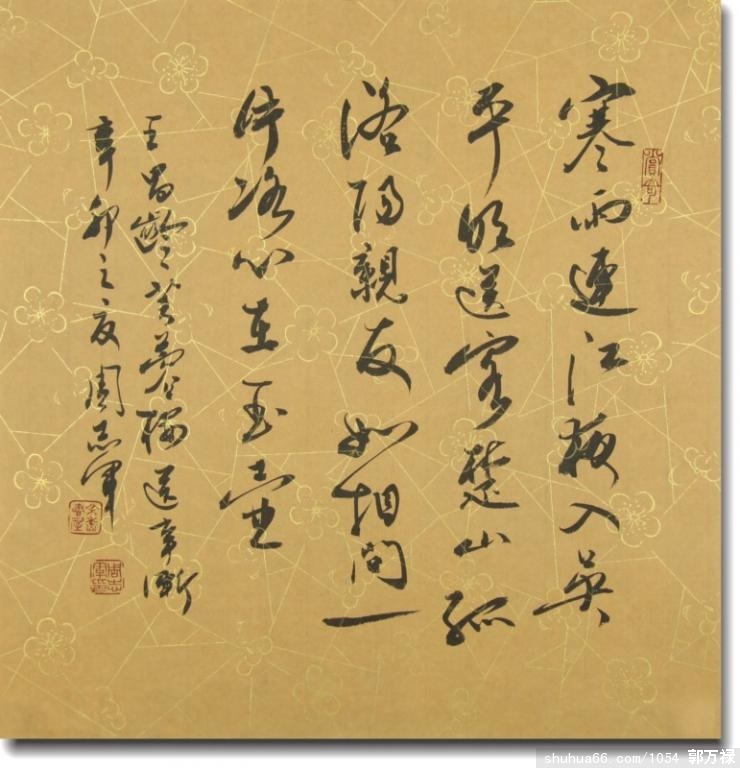 寒雨連江夜入吴
平明送客楚山孤
洛陽親友如相問一
片冰心在玉壺
王昌齡芙蓉樓送辛漸
辛卯之夏周志軍
shuhua66.com/1054 郭万禄